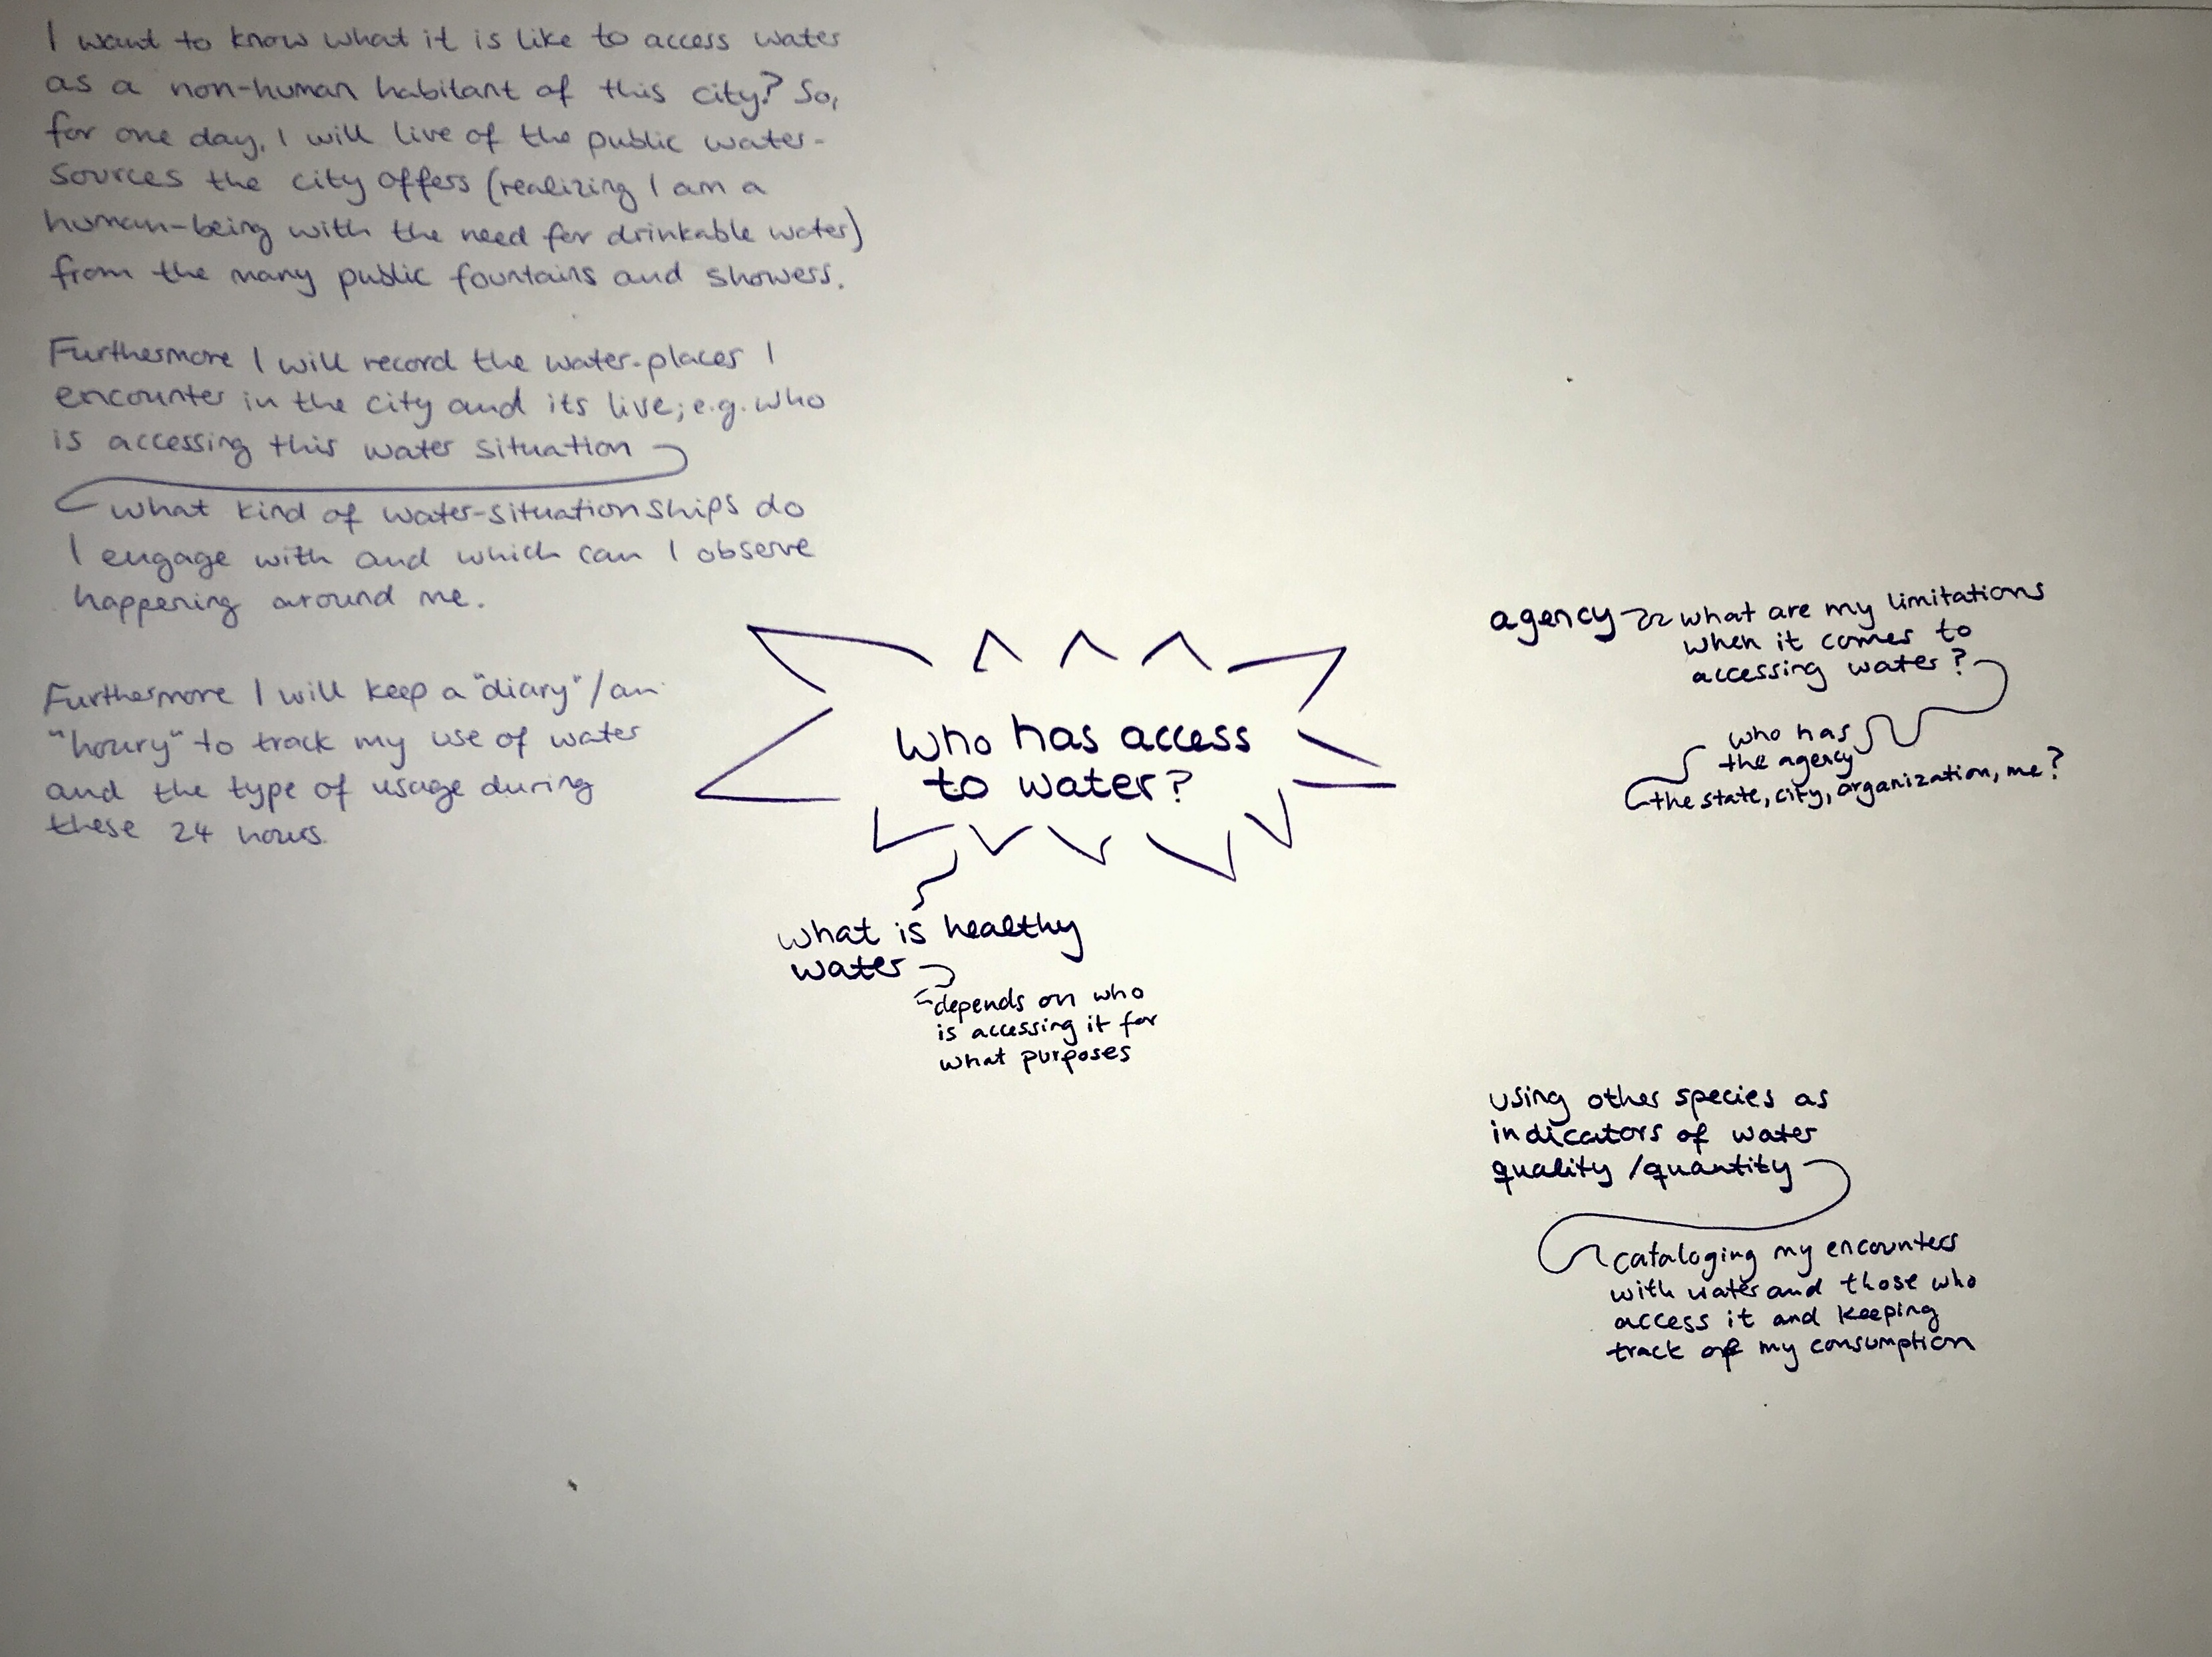 I want to know what it is like to access water
as a non-human habitant of this city? So,
for one day, I will live of the public water-
sources the city offers (realizing I am a
human-being with the need for drinkable water)
from the many public fountains and showers.
Furthermore I will record the water-places I
encounter in the city and its live; e.g. who
is accessing this water situation
what kind of water-situationships do
I engage with and which can I observe
happening around me.
Furthermore I will keep a "diary"/an
"houry" to track my use of water
and the type of usage during
these 24 hours.
who has access
to water?
what is healthy
water
depends on who
is accessing it for
what purposes
agency
what are my limitations
when it comes to
accessing water?
who has
the agency
the state, city, organization, me?
using other species as
indicators of water
quality/quantity
cataloging my encounters
with water and those who
access it and keeping
track of my consumption